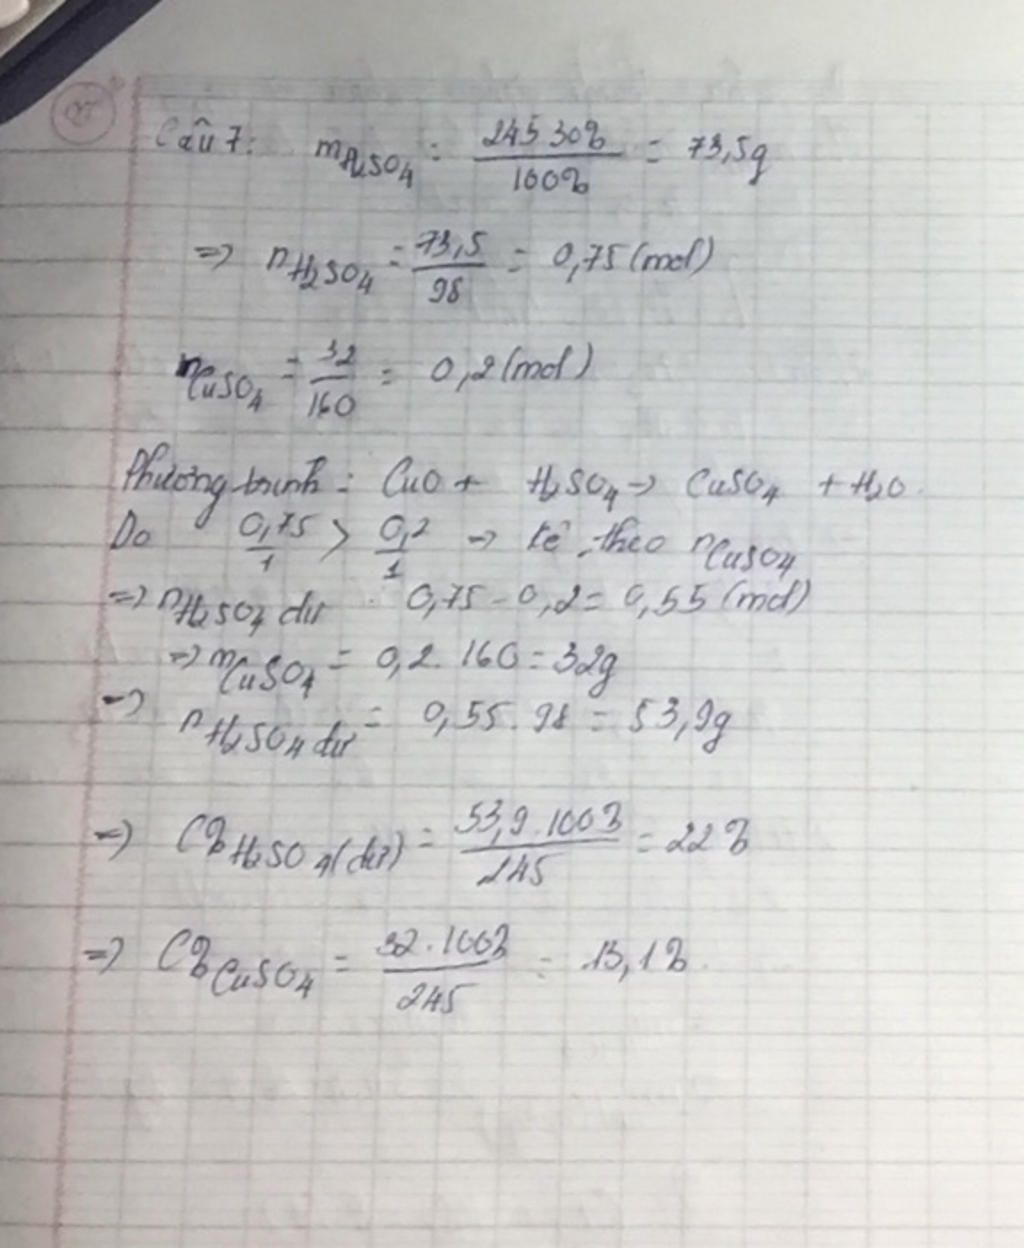 Câu 7: mH₂SO₄ = 245 30% / 100% = 73,5g
=> nH₂SO₄ = 73,5 / 98 = 0,75 (mol)
nCuSO₄ = 32 / 160 = 0,2 (mol)
Phương trình: CuO + H₂SO₄ -> CuSO₄ + H₂O.
Do 0,75 / 1 > 0,2 / 1 -> kê theo nCuSO₄
=> nH₂SO₄ dư 0,75 - 0,2 = 0,55 (mol)
=> mCuSO₄ = 0,2. 160 = 32g
=> nH₂SO₄ dư = 0,55. 98 = 53,9g
=> C% H₂SO₄ (dư) = 53,9.100% / 245 = 22%
=> C% CuSO₄ = 32.100% / 245 = 13,1%.